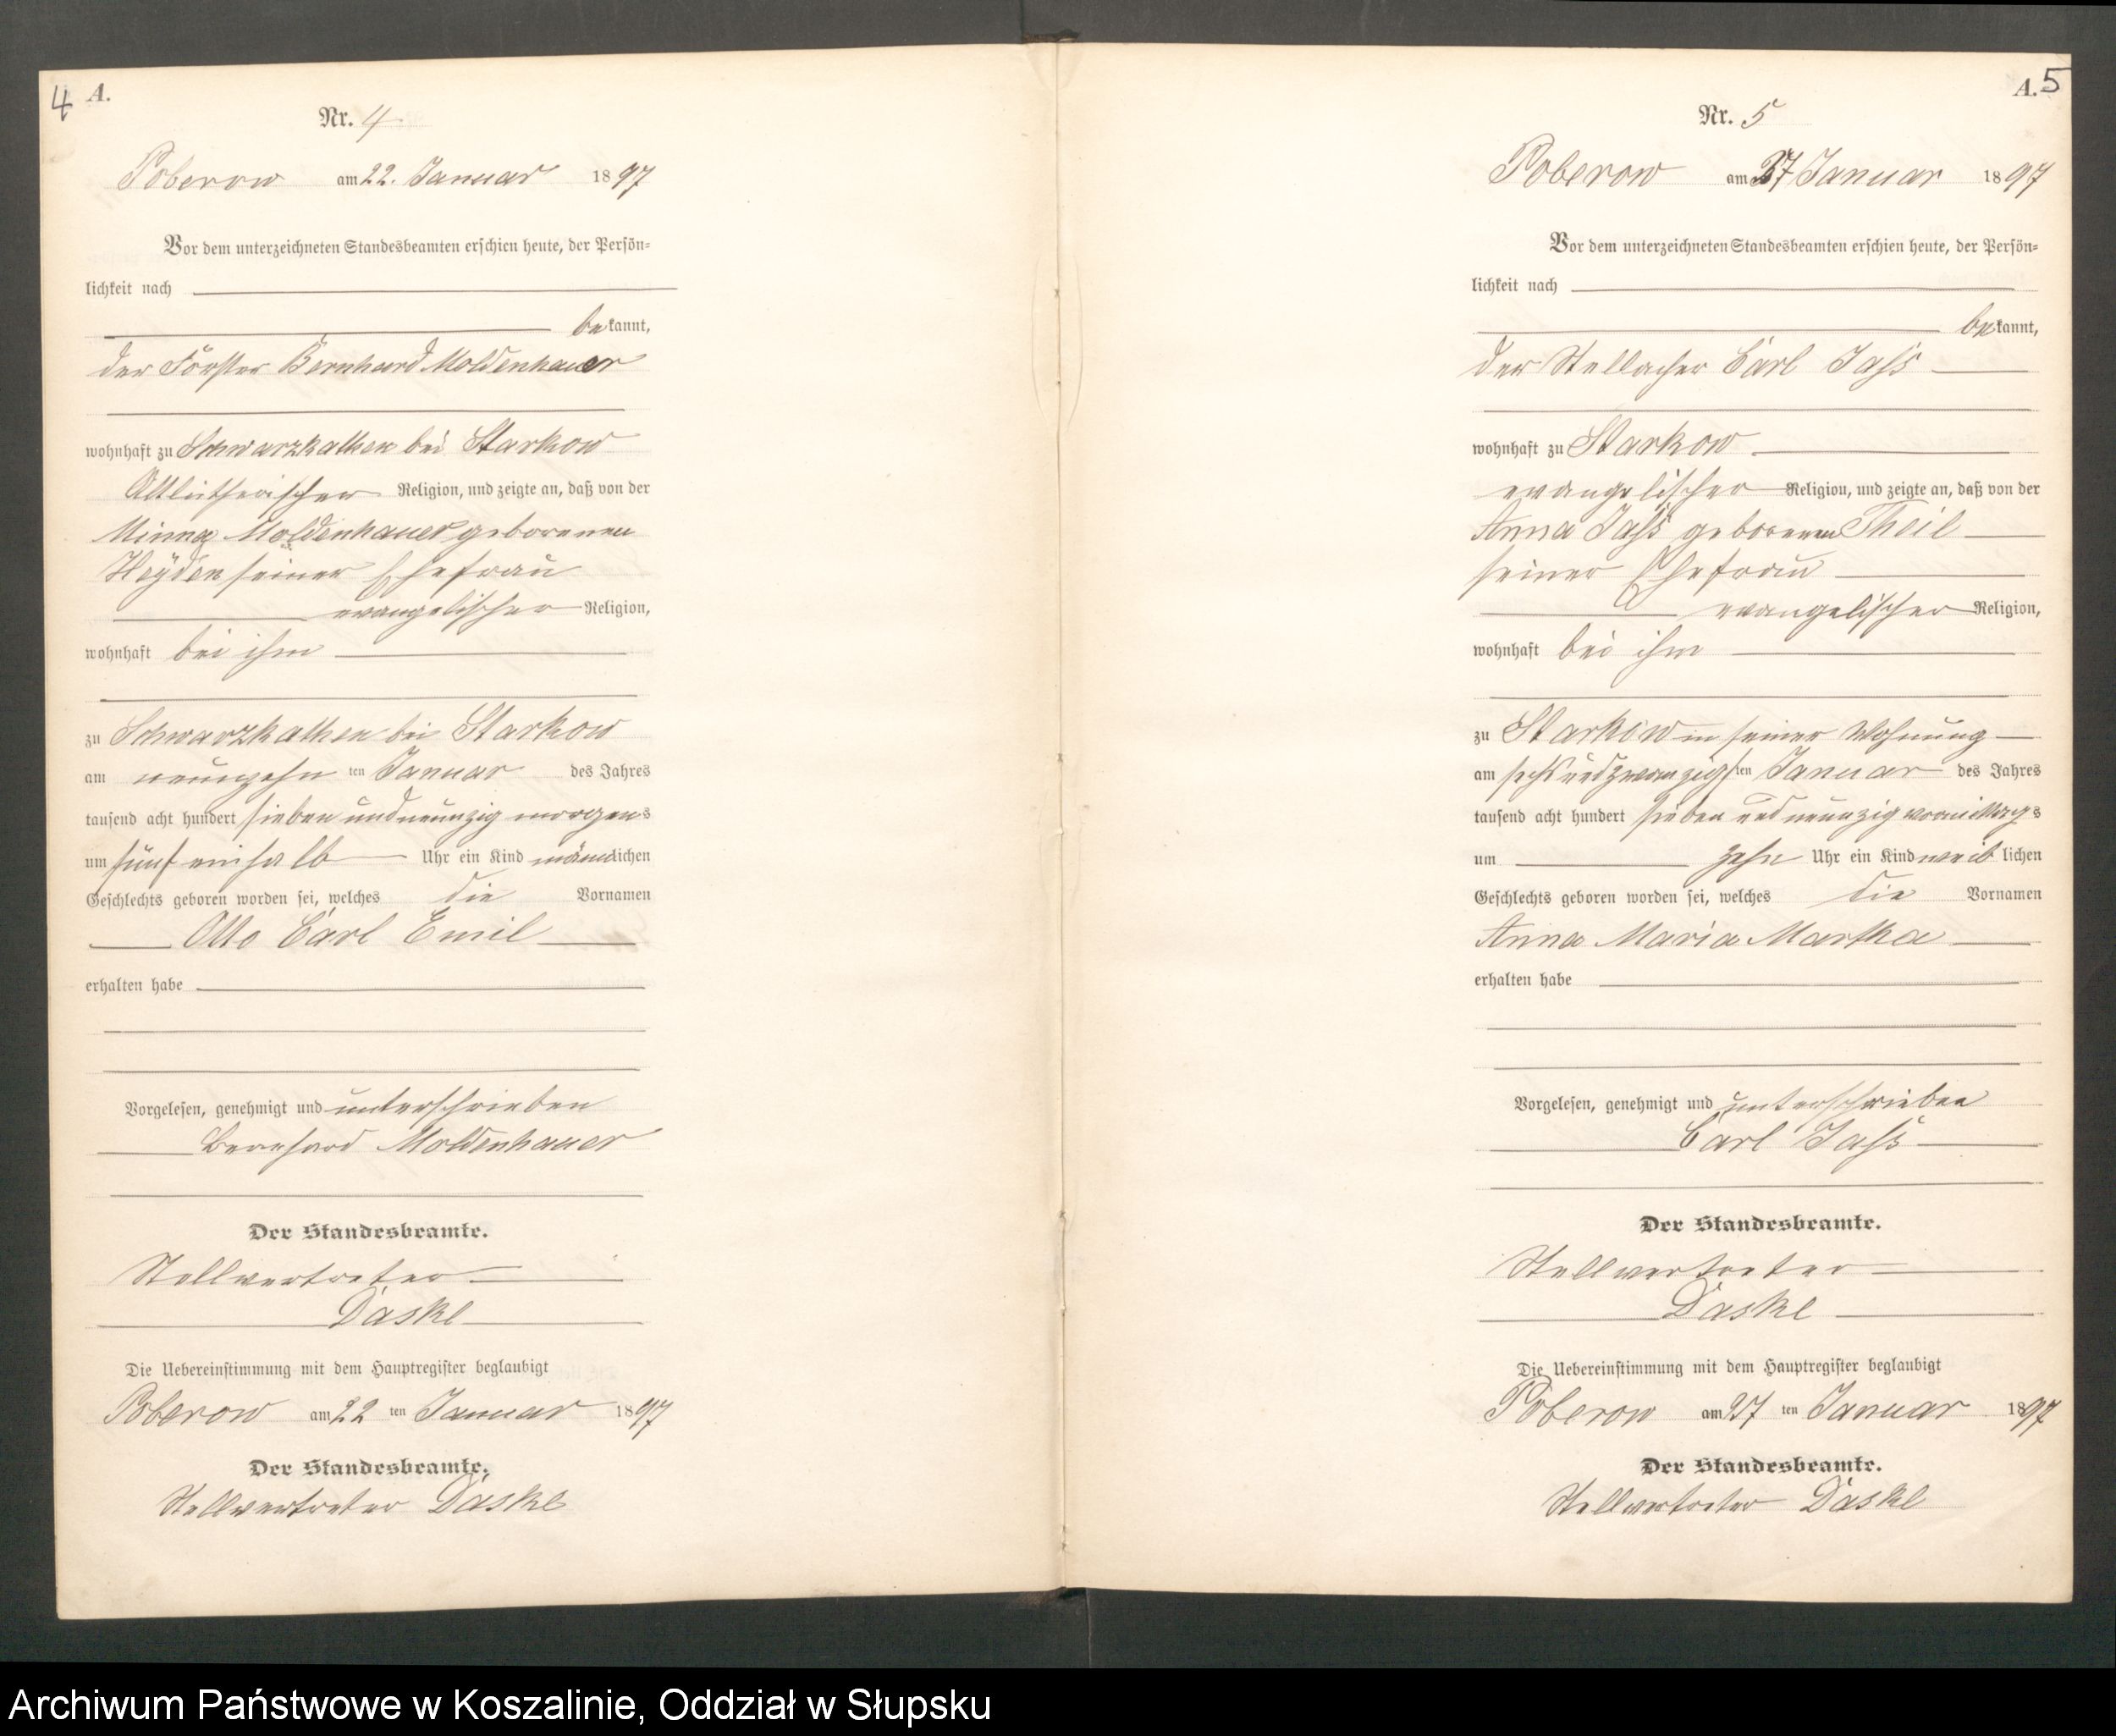 4 A.
Nr. 4
Poberow am 22. Januar 1897
Vor dem unterzeichneten Standesbeamten erschien heute, der Persön-
lichkeit nach
bekannt,
der Förster Bernhard Moldenhauer
wohnhaft zu Schwarzkathen bei Starkow
Altlutherischer Religion, und zeigte an, daß von der
Minna Moldenhauer geborenen
Heyden seiner Ehefrau
evangelischer Religion,
wohnhaft bei ihm
zu Schwarzkathen bei Starkow
am neunzehn ten Januar des Jahres
tausend acht hundert sieben und neunzig morgens
um fünf einhalb Uhr ein Kind männlichen
Geschlechts geboren worden sei, welches die Vornamen
Otto Carl Emil
erhalten habe
Vorgelesen, genehmigt und unterschrieben
Bernhard Moldenhauer
Der Standesbeamte.
Stellvertreter
Daske
Die Uebereinstimmung mit dem Hauptregister beglaubigt
Poberow am 22 ten Januar 1897
Der Standesbeamte.
Stellvertreter Daske
A. 5
Nr. 5
Poberow am 27 Januar 1897
Vor dem unterzeichneten Standesbeamten erschien heute, der Persön-
lichkeit nach
bekannt,
der Carl Jass
wohnhaft zu Starkow
evangelischer Religion, und zeigte an, daß von der
Anna Jass geborenen Theil
seiner Ehefrau
evangelischer Religion,
wohnhaft bei ihm
zu Starkow in seiner Wohnung
am sechs und zwanzigsten Januar des Jahres
tausend acht hundert sieben und neunzig vormittags
um zehn Uhr ein Kind weiblichen
Geschlechts geboren worden sei, welches die Vornamen
Anna Maria Martha
erhalten habe
Vorgelesen, genehmigt und unterschrieben
Carl Jass
Der Standesbeamte.
Stellvertreter
Daske
Die Uebereinstimmung mit dem Hauptregister beglaubigt
Poberow am 27 ten Januar 1897
Der Standesbeamte.
Stellvertreter Daske
Archiwum Państwowe w Koszalinie, Oddział w Słupsku